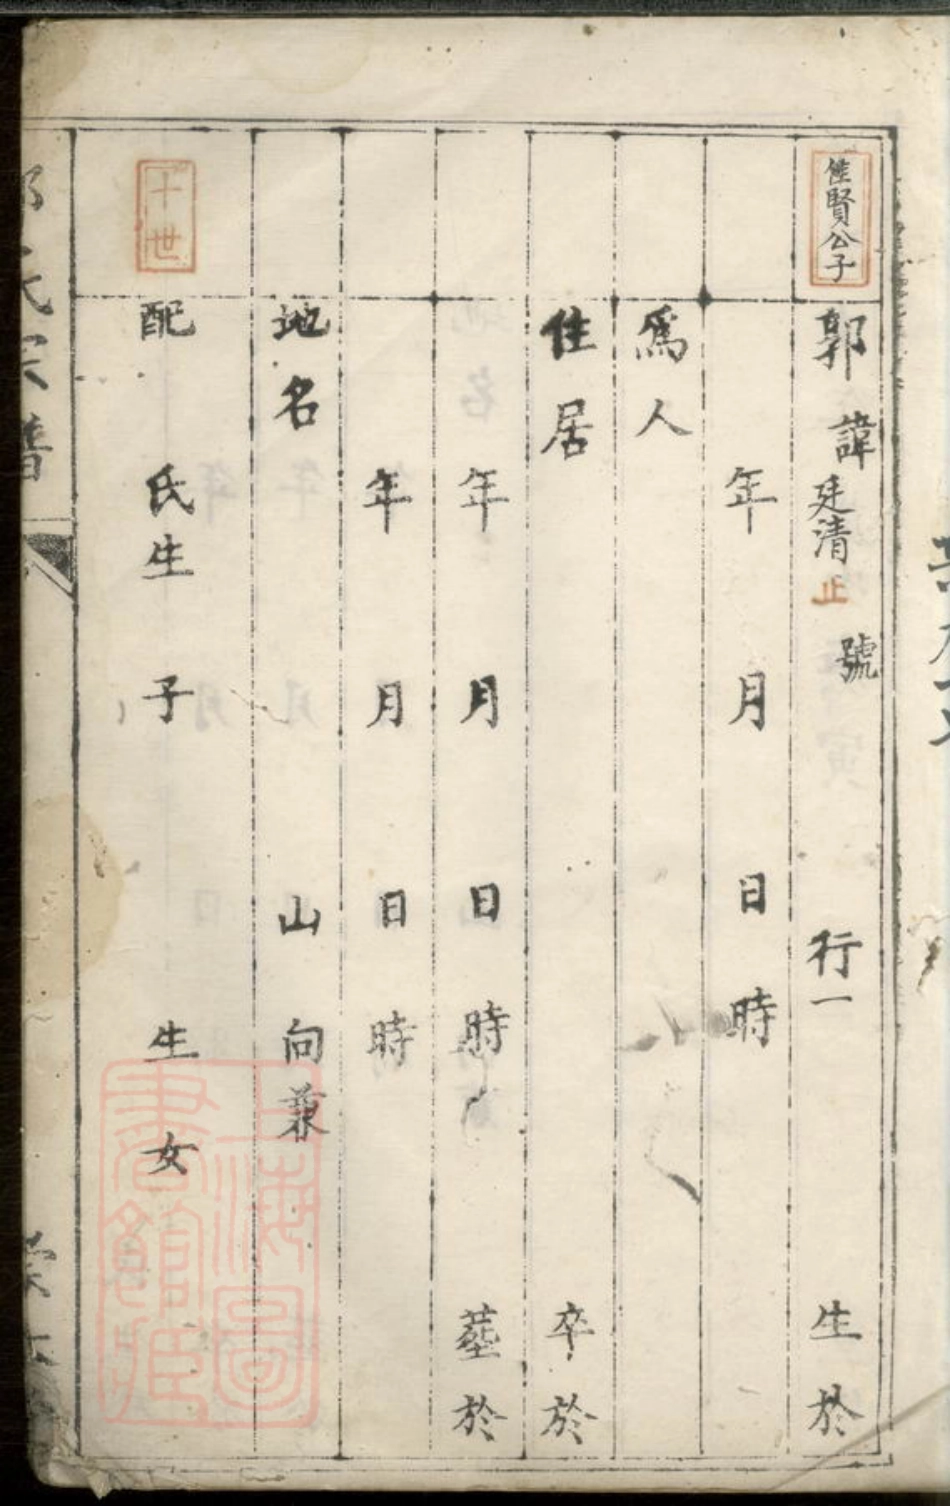 隹賢公子
郭 諱廷清 止 號 行一 生於
年 月 日 時
爲人
住居 卒於
年 月 日 時 葬於
年 月 日 時
地名 山 向兼
十世
配 氏生 子 生 女
氏宗譜
上海圖書館藏